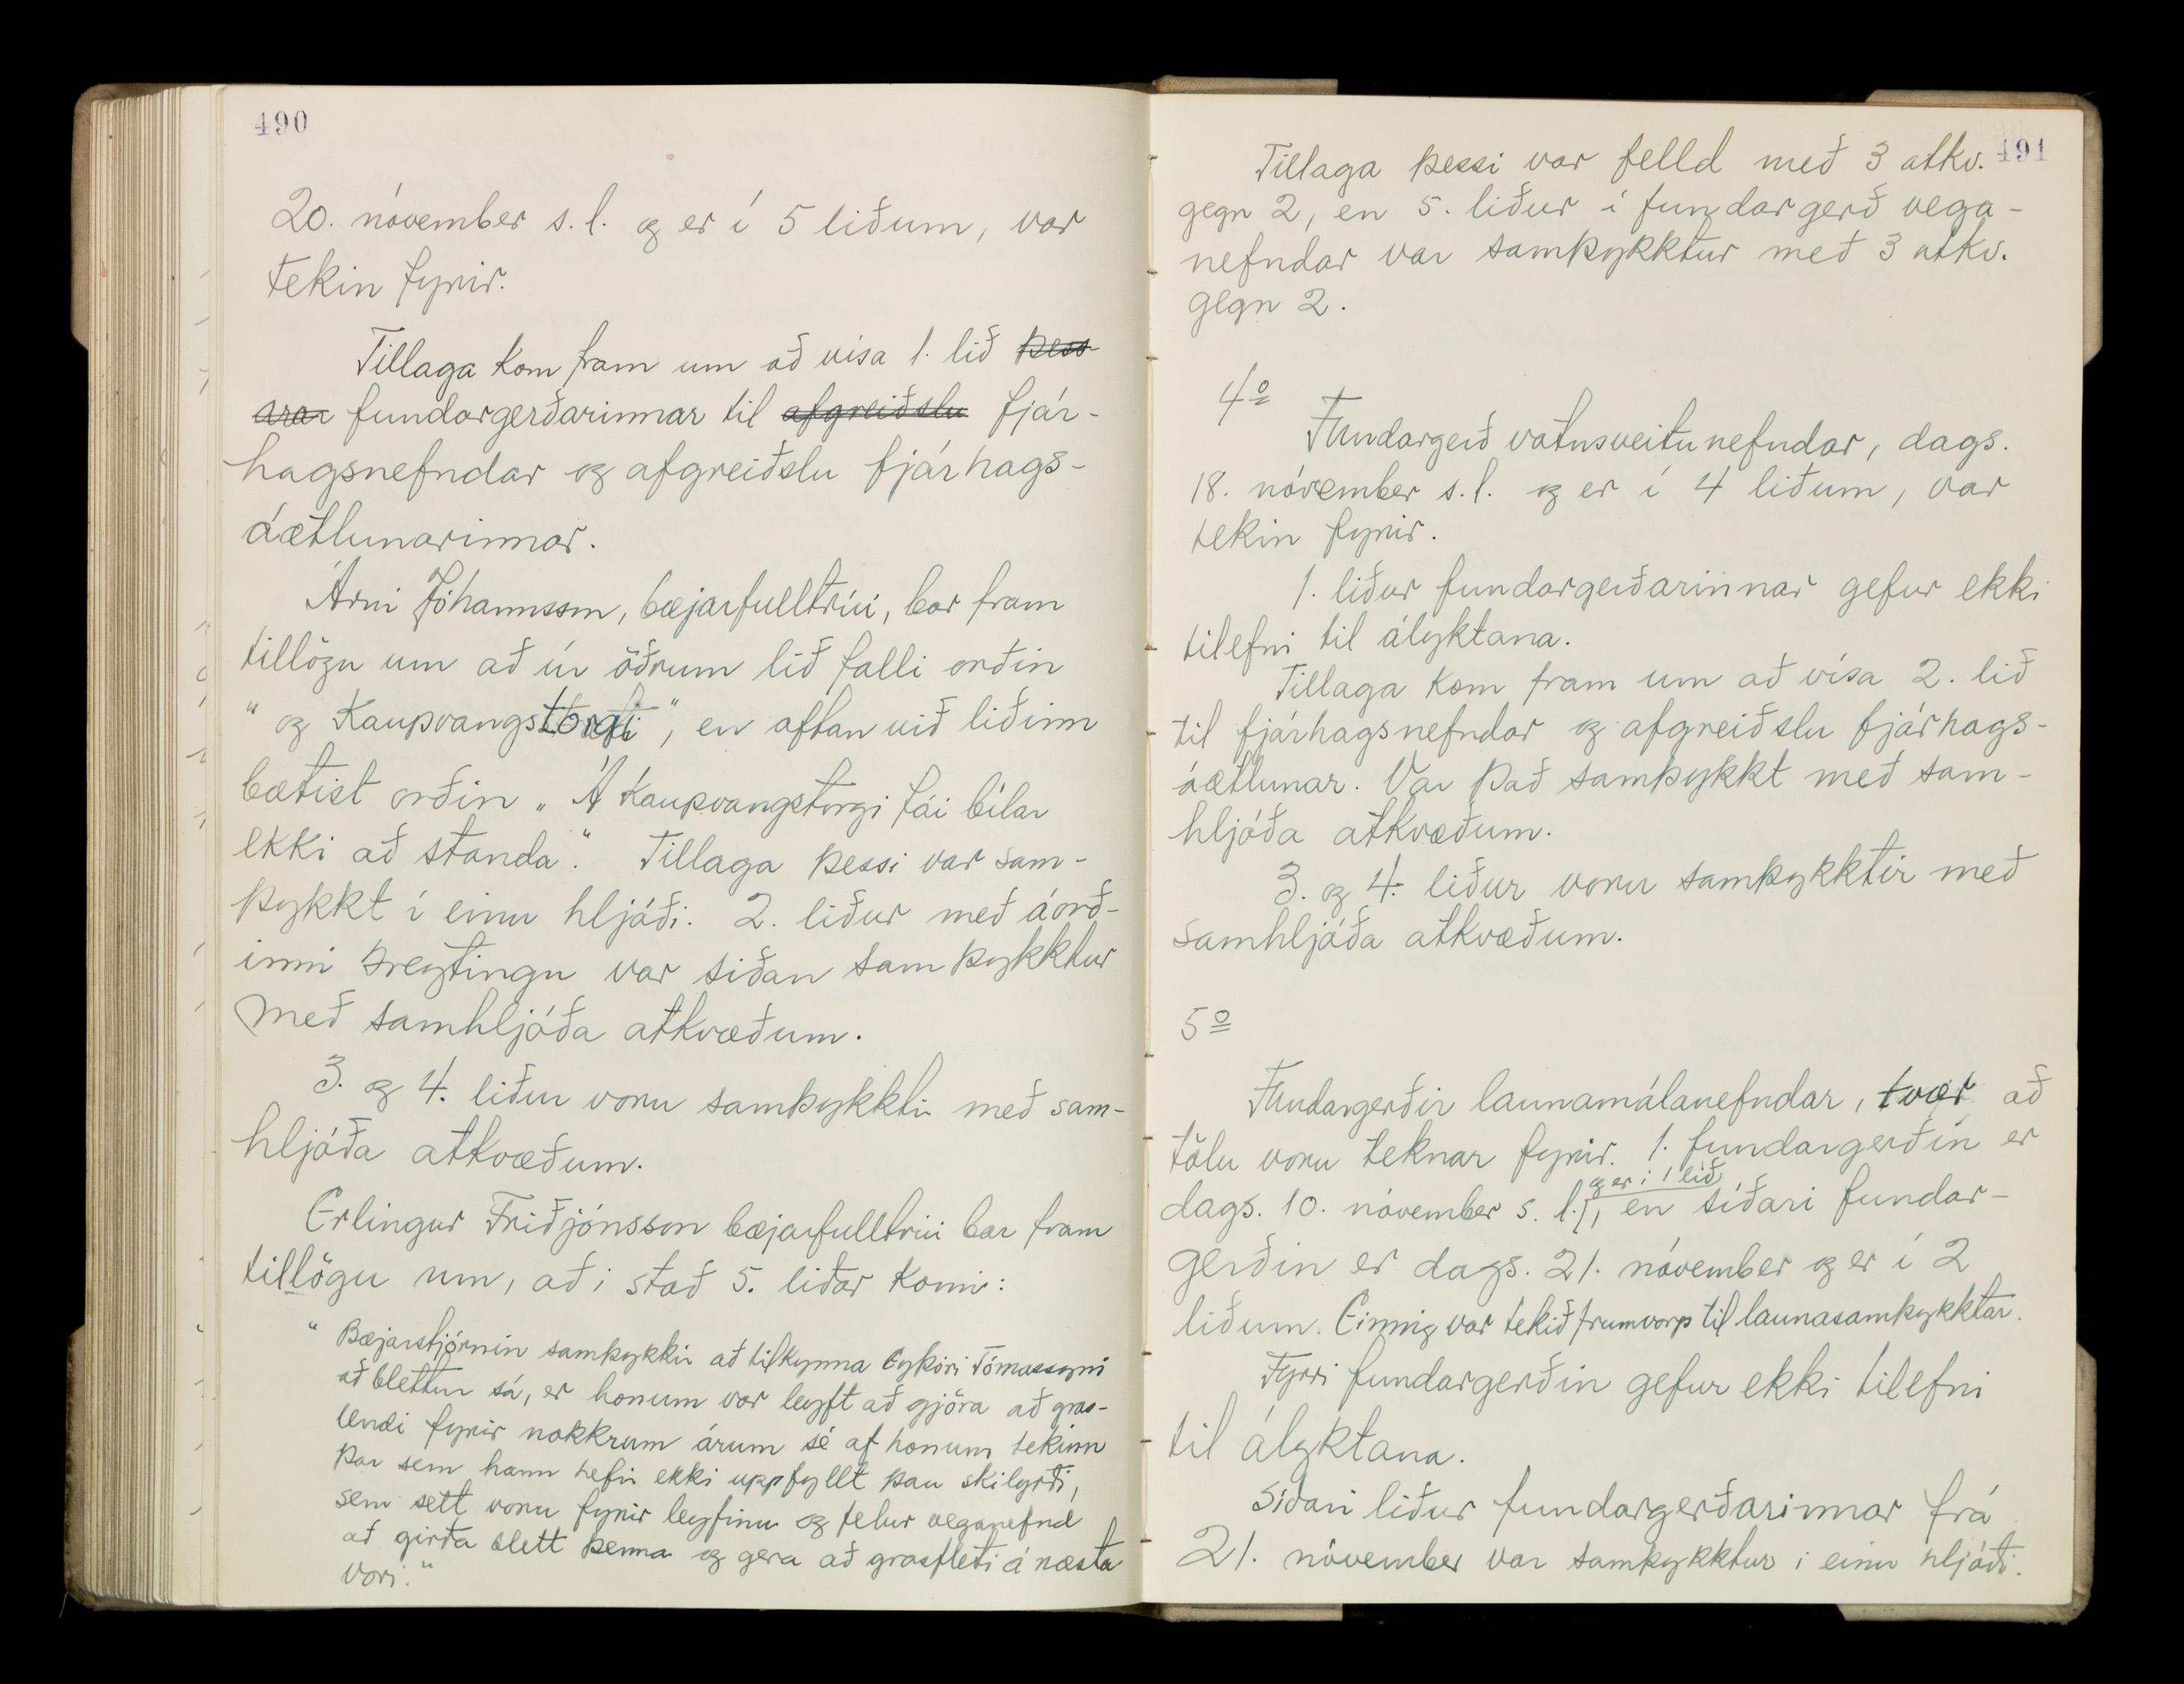 490
20. nóvember s.l. og er í 5 liðum, var
tekin fyrir.
Tillaga kom fram um að vísa 1. lið þess-
arar fundargerðarinnar til afgreiðslu fjár-
hagsnefndar og afgreiðslu fjárhags-
áætlunarinnar.
Árni Jóhannsson, bæjarfulltrúi, bar fram
tillögu um að úr öðrum lið falli orðin
“ og Kaupvangstorgi ”, en aftan við liðinn
bætist orðin „ Á Kaupvangstorgi fái bílar
ekki að standa.“ Tillaga þessi var sam-
þykkt í einu hljóði. 2. liður með áorð-
inni breytingu var síðan samþykktur
með samhljóða atkvæðum.
3. og 4. liður voru samþykktir með sam-
hljóða atkvæðum.
Erlingur Friðjónsson bæjarfulltrúi bar fram
tillögu um, að í stað 5. liðar komi:
“ Bæjarstjórnin samþykkir að tilkynna Eyþóri Tómassyni
að blettur sá, er honum var leyft að gjöra að gras-
lendi fyrir nokkrum árum sé af honum tekinn
þar sem hann hefir ekki uppfyllt þau skilyrði,
sem sett voru fyrir leyfinu og felur veganefnd
að girða blett þenna og gera að grasfleti á næsta
vori.“
491
Tillaga þessi var felld með 3 atkv.
gegn 2, en 5. liður í fundargerð vega-
nefndar var samþykktur með 3 atkv.
gegn 2.
4º
Fundargerð vatnsveitunefndar, dags.
18. nóvember s.l. og er í 4 liðum, var
tekin fyrir.
1. liður fundargerðarinnar gefur ekki
tilefni til ályktana.
Tillaga kom fram um að vísa 2. lið
til fjárhagsnefndar og afgreiðslu fjárhags-
áætlunar. Var það samþykkt með sam-
hljóða atkvæðum.
3. og 4. liður voru samþykktir með
samhljóða atkvæðum.
5º
Fundargerðir launamálanefndar, tvær að
tölu voru teknar fyrir. 1. fundargerðin er
og er í 1 lið
dags. 10. nóvember s.l., en síðari fundar-
gerðin er dags. 21. nóvember og er í 2
liðum. Einnig var tekið frumvarp til launasamþykktar.
Fyrri fundargerðin gefur ekki tilefni
til ályktana.
Síðari liður fundargerðarinnar frá
21. nóvember var samþykktur í einu hljóði.